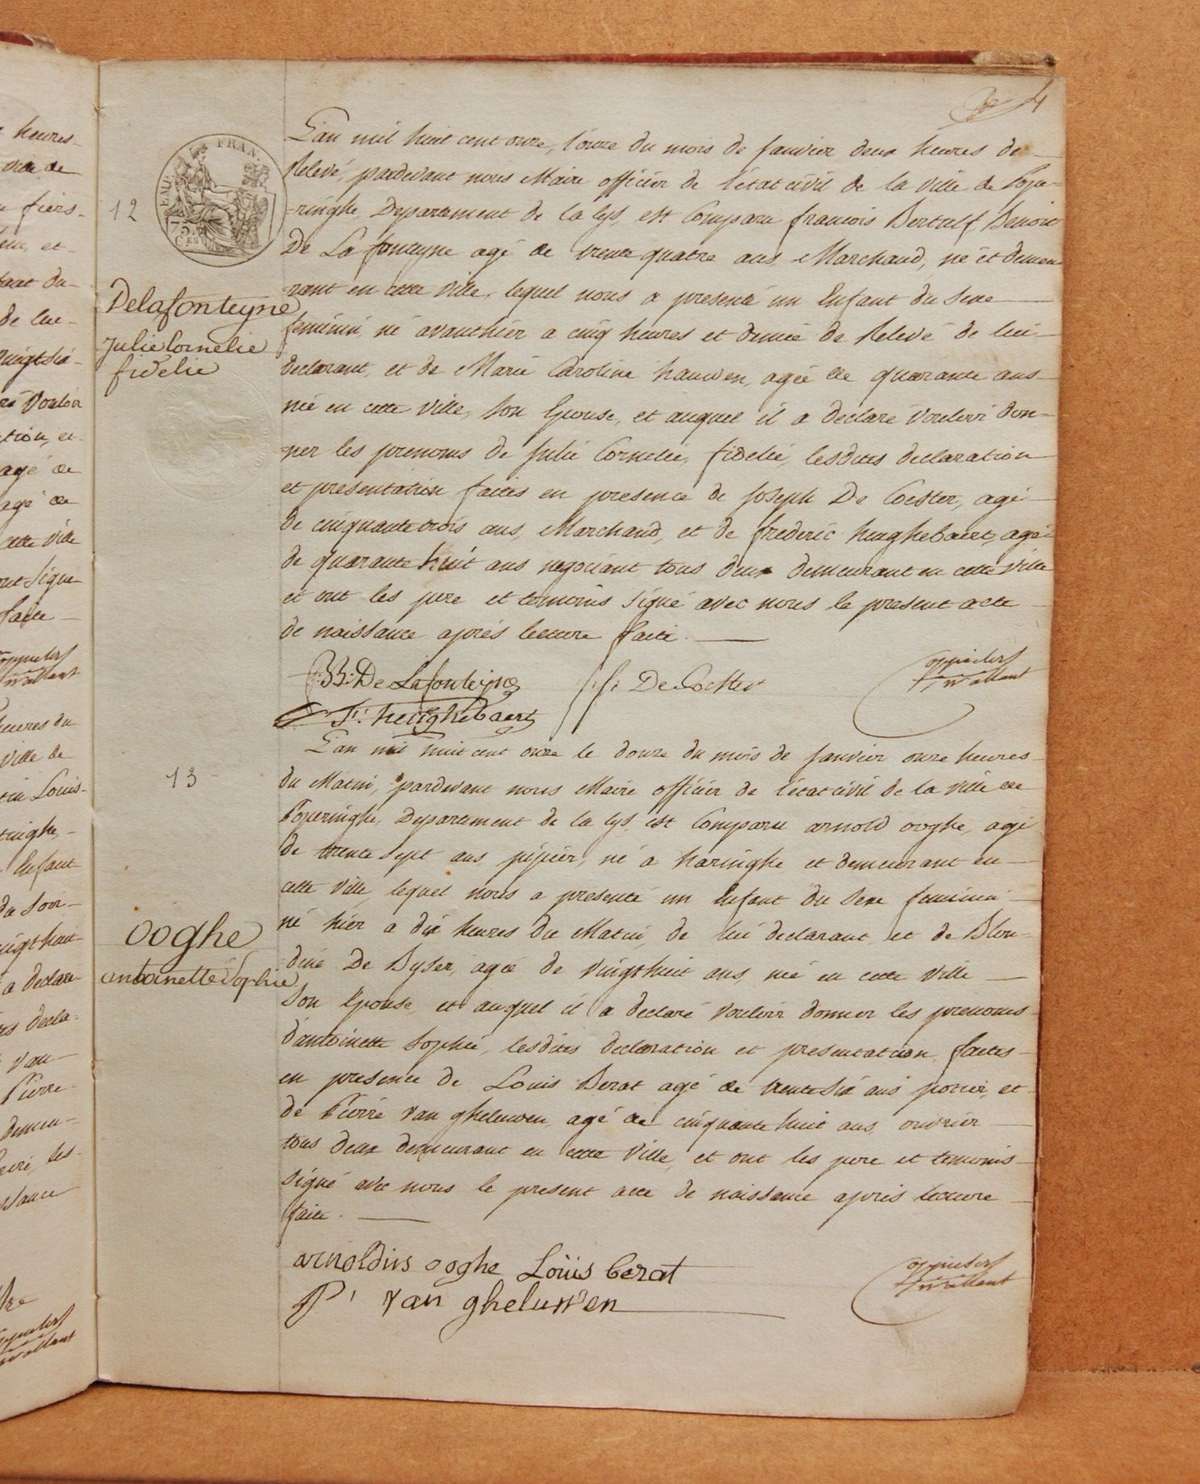 4
L'an mil huit cent onze, l'onze du mois de Janvier deux heures de
Relevé, pardevant nous Maire officier de l'état civil de la ville de Pope-
-ringhe, Departement de la Lys, est Comparu francois Bertulf Benoit
De La fonteyne agé de trente quatre ans Marchand, né et demeu
rant en cette ville, lequel nous a presenté un Enfant du Sexe
feminin, né avanthier a cinq heures et demie de Relevé de lui
declarant, et de Marie Caroline hauwen, agée de quarante ans
née en cette ville, Son Epouse, et auquel il a declaré Vouloir don-
ner les prenoms de Julie Cornelie, fidelie, lesdites declaration
et presentation faites en presence de Joseph De Coester, agé
de cinquante trois ans, Marchand, et de frederic heughebaert, agé
de quarante huit ans negociant tous deux demeurant en cette ville
et ont les pere et temoins Signé avec nous le present acte
de naissance après lecture faite.
12
Delafonteyne
Julie Cornelie
fidelie
B: De Lafonteyne
J: De Coester
Fr: heughebaert
L'an mil huit cent onze le douze du mois de Janvier onze heures
du Matin, pardevant nous Maire officier de l'état civil de la ville de
Poperinghe, Departement de la Lys, est Comparu arnold ooghe, agé
de trente sept ans, pipier, né a haringhe et demeurant en
cette ville, lequel nous a presenté un Enfant du Sexe feminin
né hier a dix heures du Matin, de lui declarant, et de Blon-
dine De Dyser, agée de vingt huit ans, née en cette ville
Son Epouse, et auquel il a declaré vouloir donner les prenoms
d'antoinette Sophie, lesdites declaration et presentation faites
en presence de Louis Berat agé de trente Six ans potier, et
de Pierre Van gheluwen, agé de cinquante huit ans, ouvrier
tous deux demeurant en cette Ville, et ont les pere et temoins
Signé avec nous le present acte de naissance après lecture
faite.
13
ooghe
antoinette Sophie
arnoldus ooghe Loüis berat
P. van gheluwen